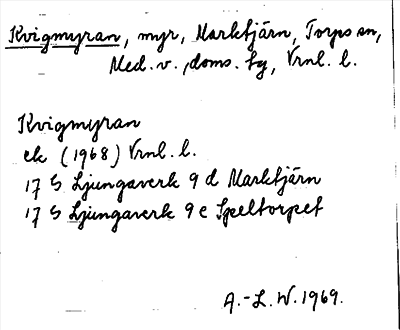 Kvigmyran, myr, Marktjärn, Torps sn,
Med. v., doms. fg, Vrnl. l.
Kvigmyran
ek (1968) Vrnl. l.
17 G Ljungaverk 9 d Marktjärn
17 G Ljungaverk 9 e Speltorpet
A.-L. W. 1969.